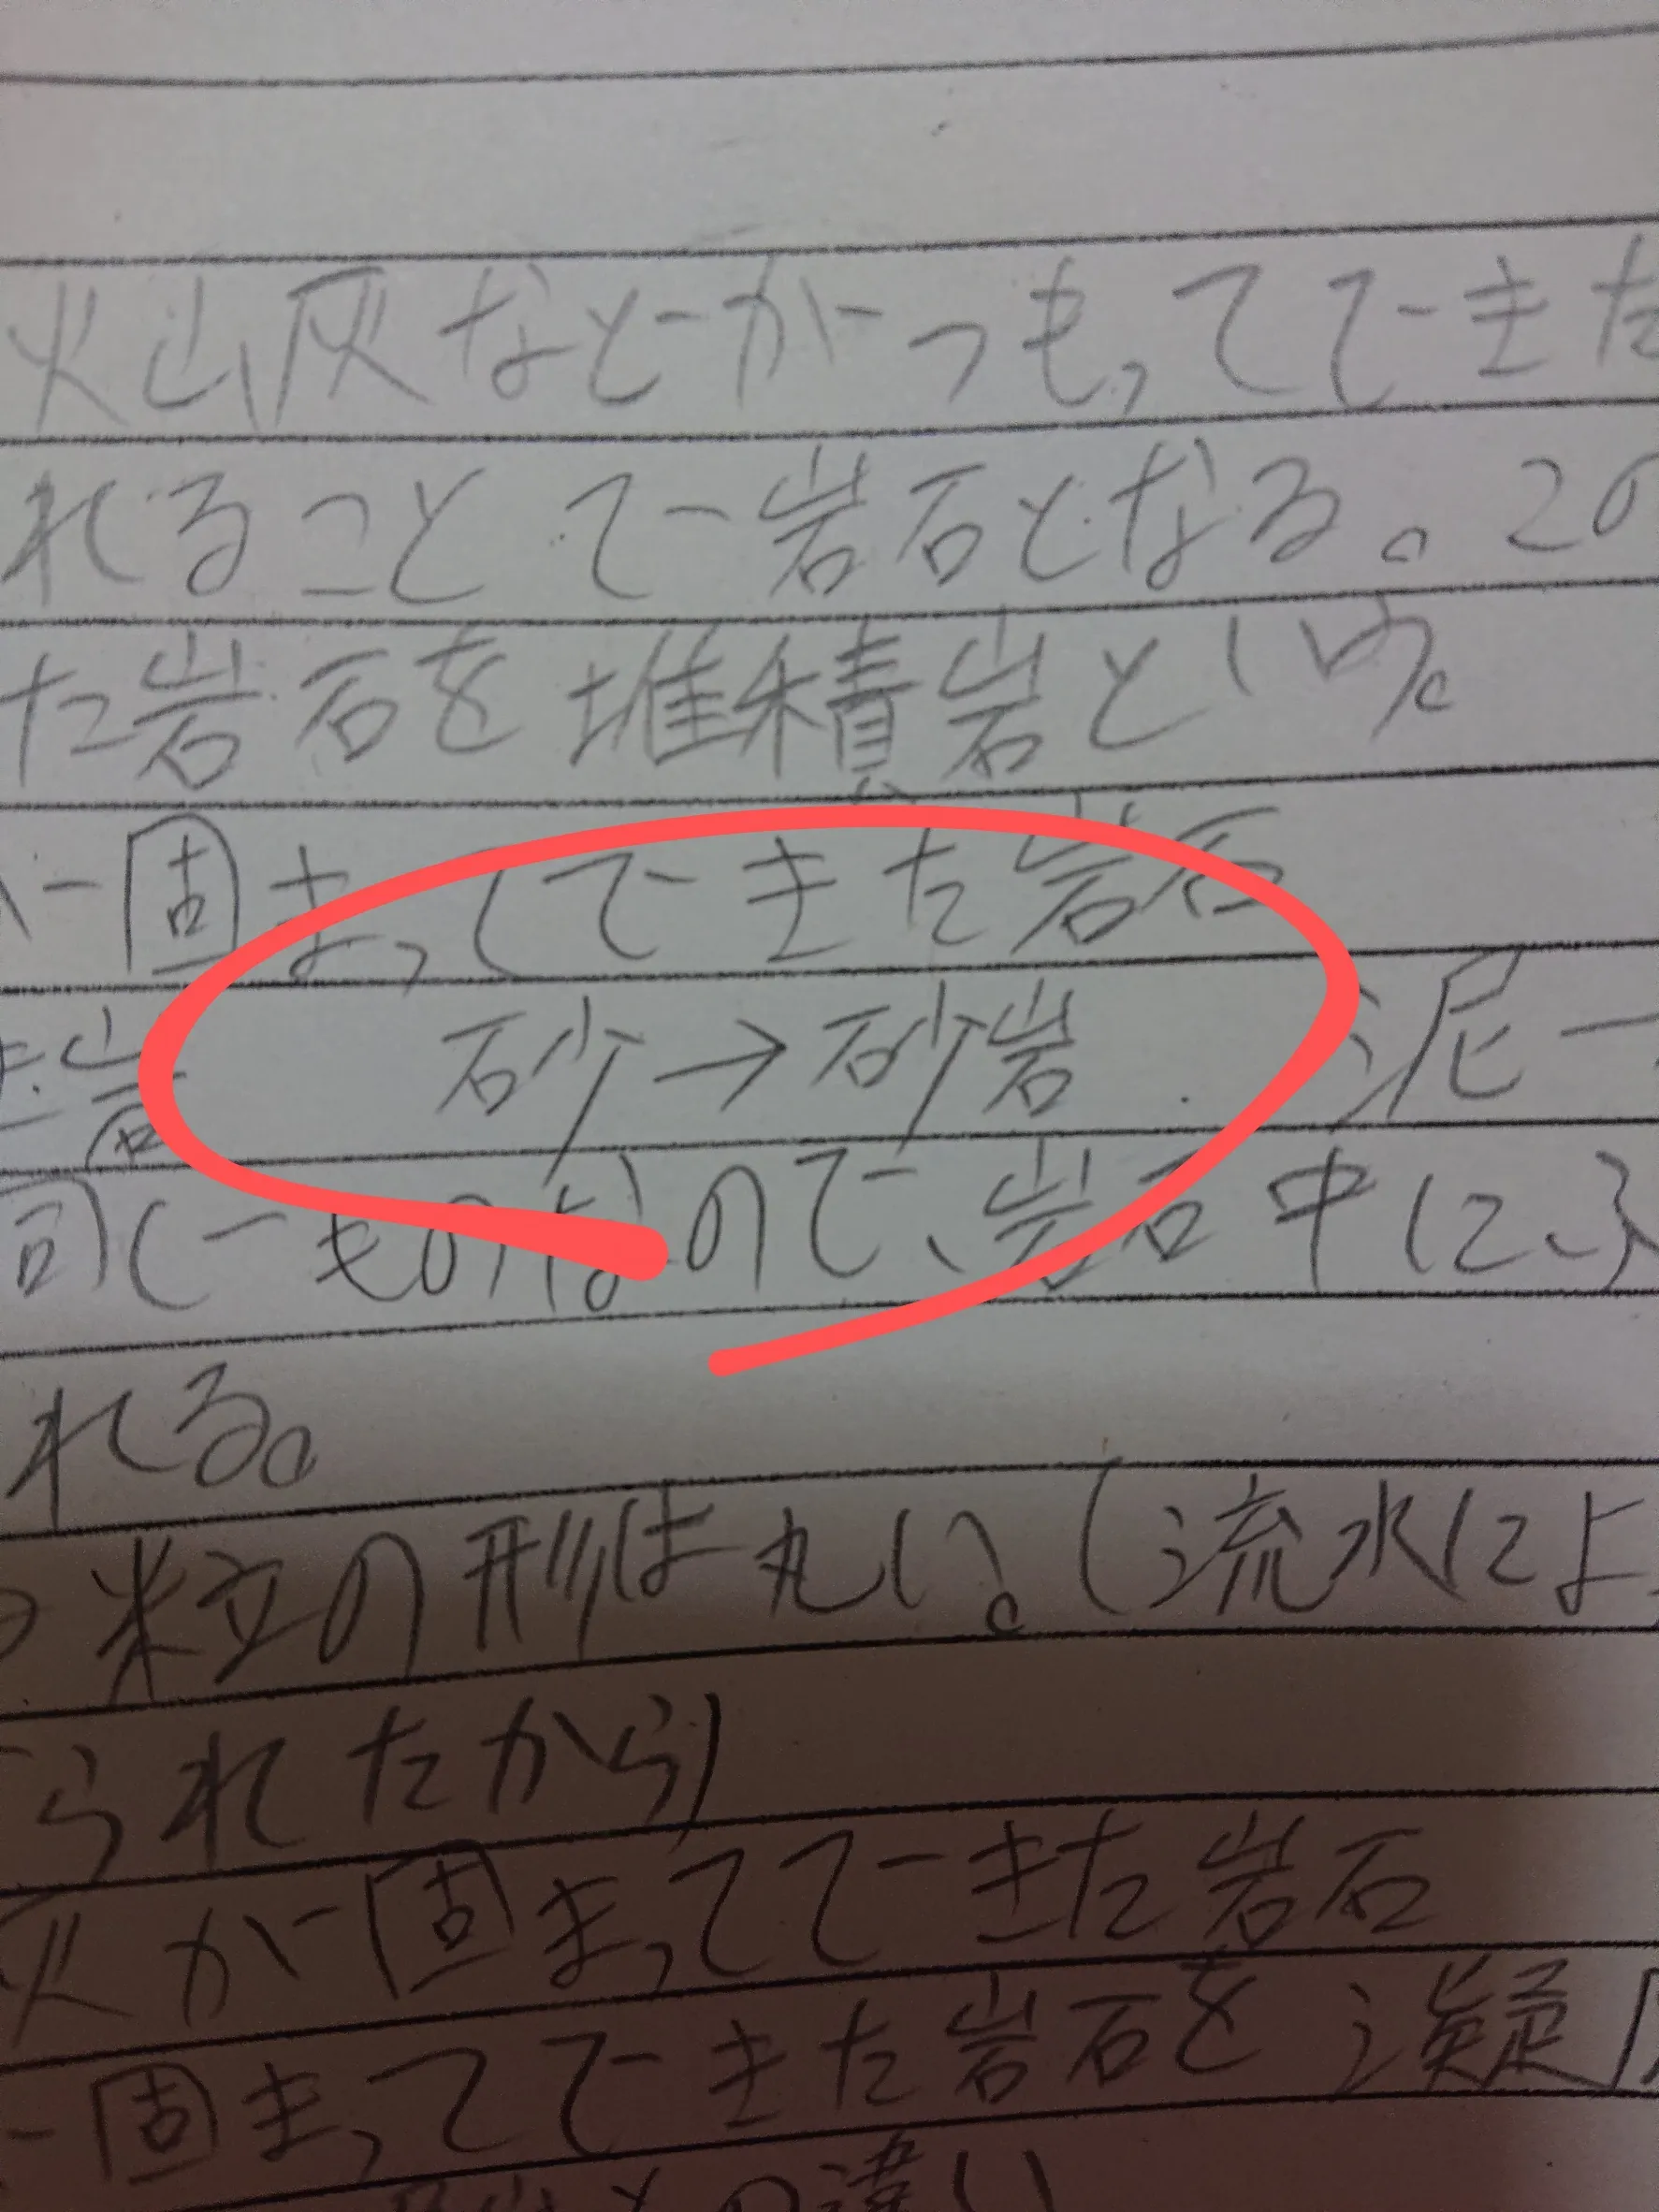 火山灰などがつもってできた
れることで岩石となる。この
た岩石を堆積岩という。
固まってできた岩石
岩 砂→砂岩 泥
同じものなので、岩石中に、
れる。
粒の形は丸い。(流水によ
られたから)
灰が固まってできた岩石
固まってできた岩石を凝
との違い